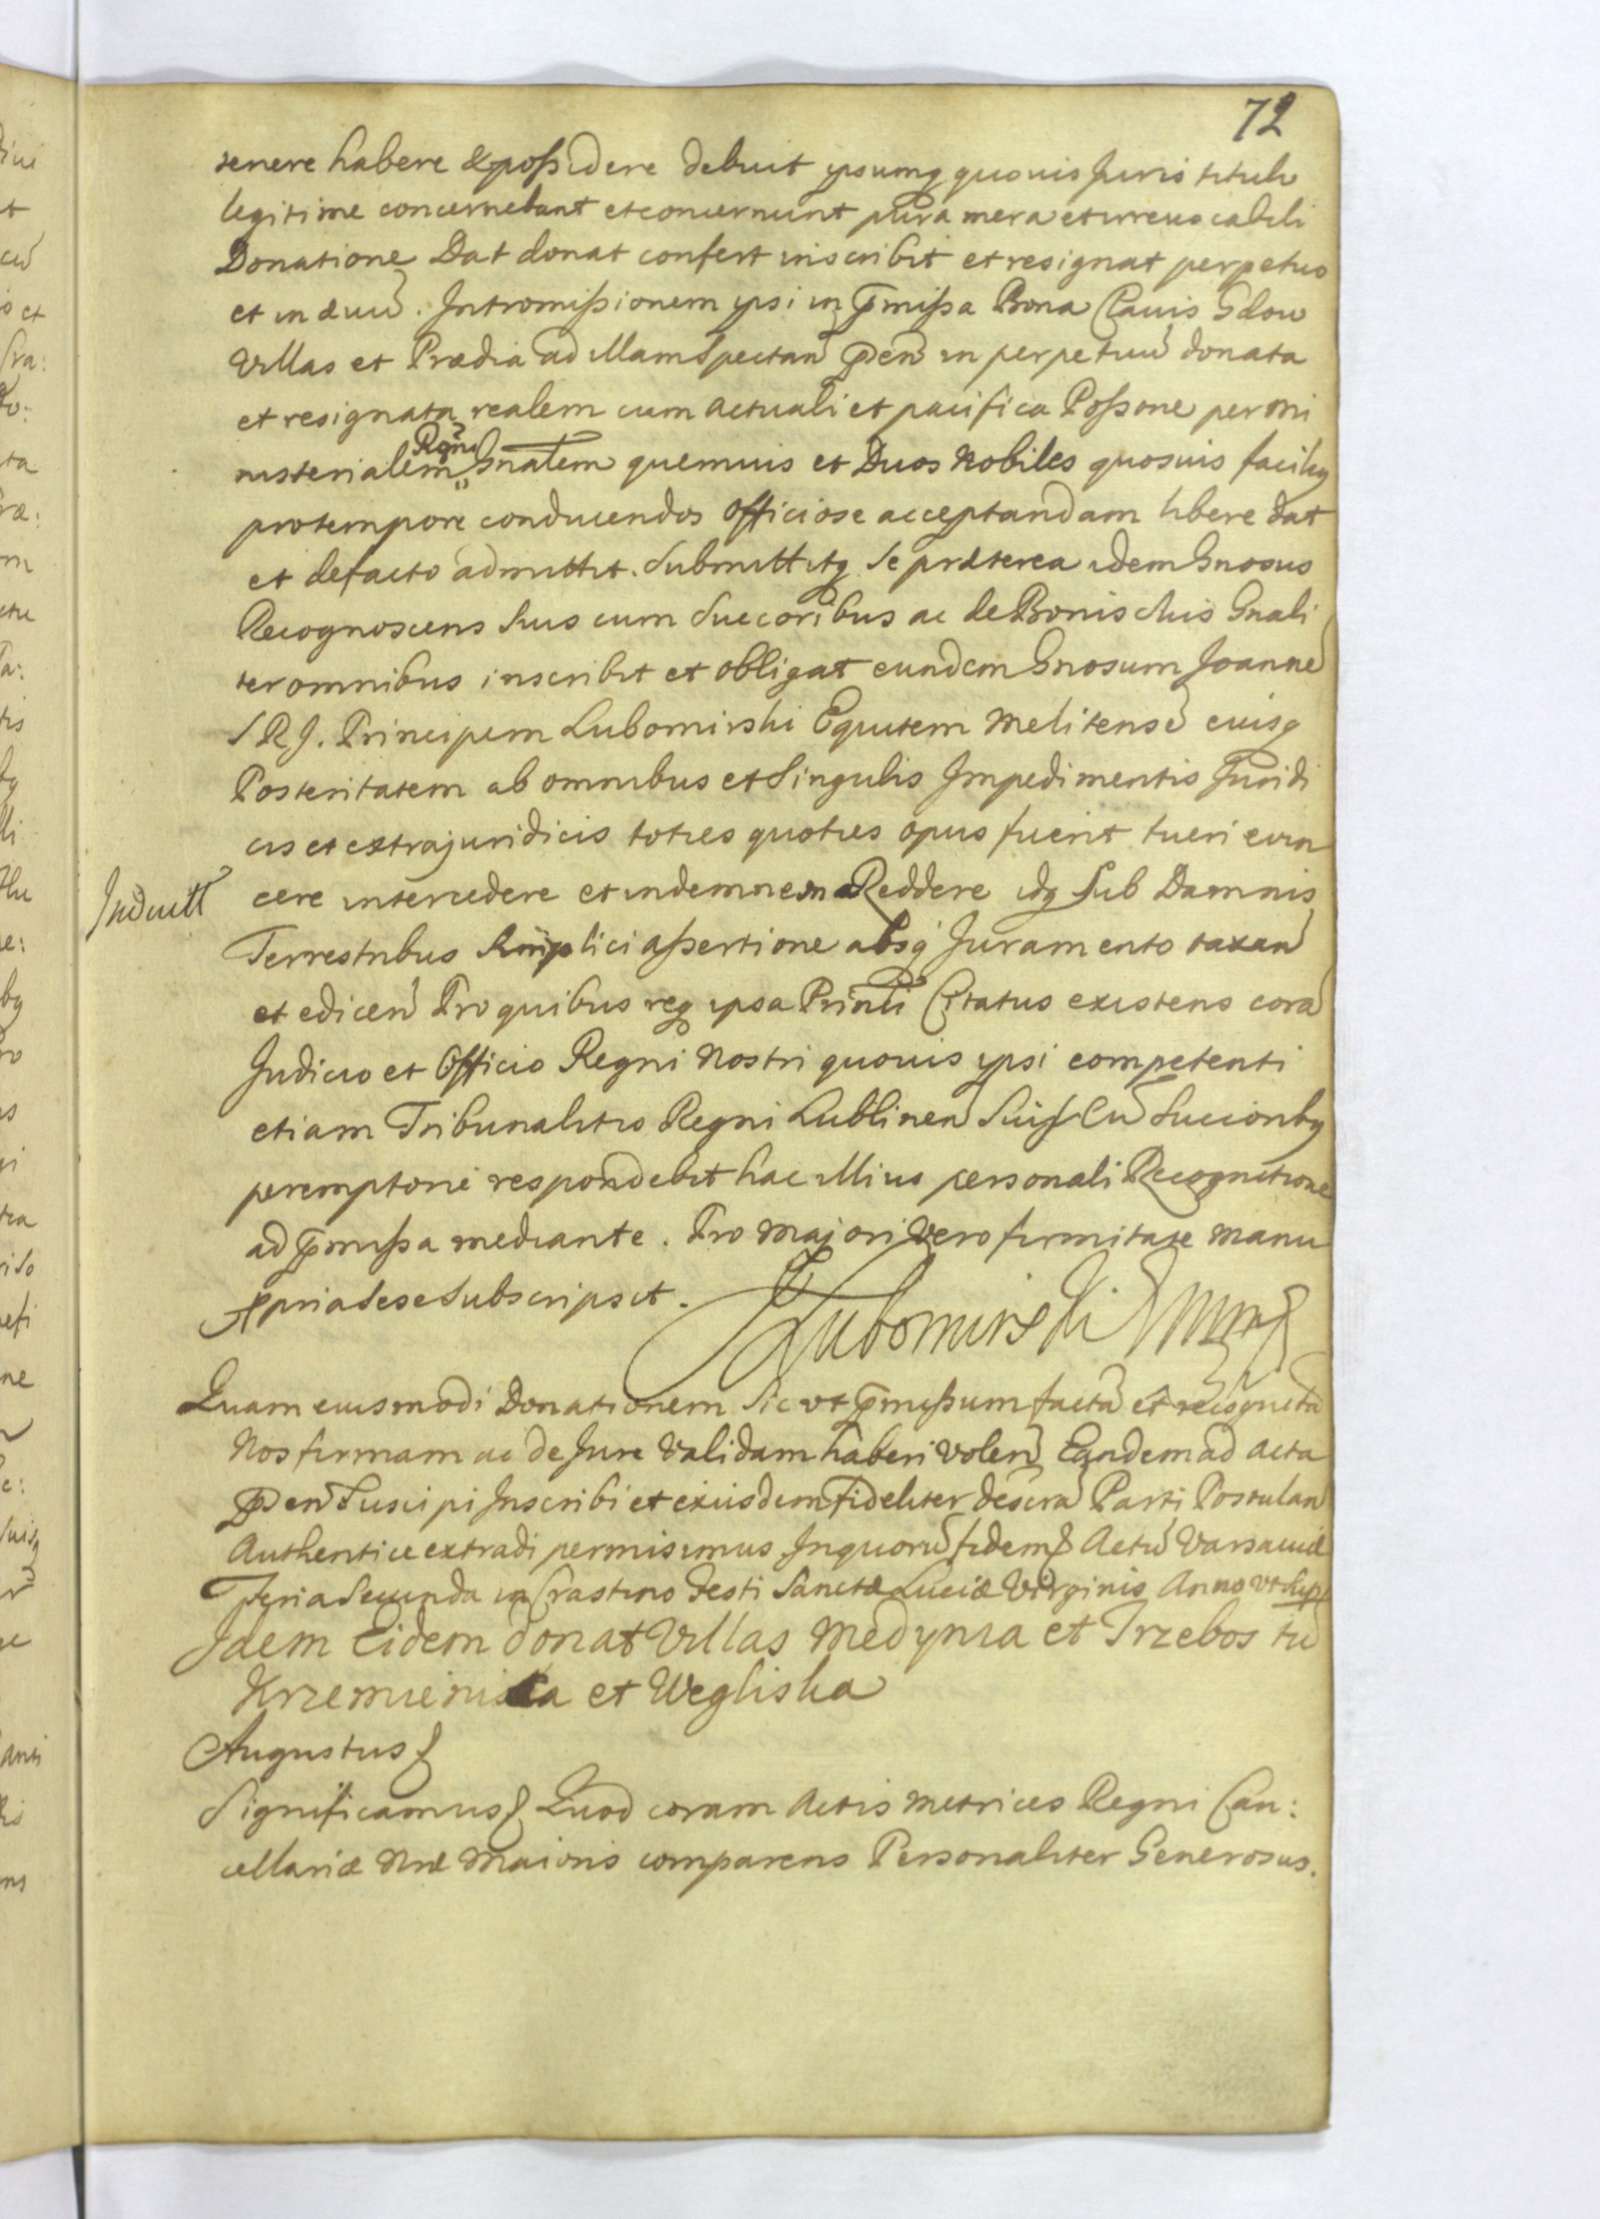 72
tenere habere & possidere debuit ipsumq quovis Juris titulo
legitime concernebant et concernunt pura mera et irrevocabili
Donatione Dat donat confert inscribit et resignat perpetuo
et in ævũ. Intromissionem ipsi in p̃missa Bona Clavis Gdow
Villas et Prædia ad illam Spectan p̃sen in perpetuũ donata
et resignata realem cum actuali et pacifica Possone per mi
nisterialem Regni Gnalem quemvis et Duos Nobiles quosvis facilʒ
pro tempore conducendos Officiose acceptandam libere dat
et defacto admittit. Submittitq Se præterea idem Gnosus
Recognoscens Suis cum Succoribus ac de Bonis Suis Gnali
ter omnibus inscribit et obligat eundem Gnosum Joannẽ
S R J. Principem Lubomirski Equitem Melitensẽ eiusq
Posteritatem ab omnibus et Singulis Impedimentis Juridi
cis et extrajuridicis toties quoties opus fuerit tueri evin
cere intercedere et indemnem Reddere idq Sub Damnis
Terrestribus Simplici assertione absq Juramento taxan
et edicen Pro quibus req ipsa Princli Citatus existens corã
Judicio et Officio Regni Nostri quovis ipsi competenti
etiam Tribunalitio Regni Lublinen Suisq Cũ Succoribq
peremptorie respondebit hac illius personali Recognitione
ad p̃missa mediante. Pro majori Vero firmitate manu
ppria Sese Subscripsit. Lubomirski mp
Quam eiusmodi Donationem Sic vt p̃missum factã et recognitã
Nos firmam ac de Jure Validam haberi volen Eandem ad Acta
p̃sen Suscipi Inscribi et exiisdem fideliter descrã Parti Postulan
Authentice extradi permisimus. In quorũ fidem Actũ Varsaviæ
Feria Secunda in Crastino Festi Sanctæ Luciæ Virginis Anno vt Sup
Idem Eidem donat Villas Medynia et Trzebos tũ
Krzemienica et Wegliska
Augustus
Significamus Quod coram Actis Metrices Regni Can:
cellariæ Nræ Maioris comparens Personaliter Generosus.